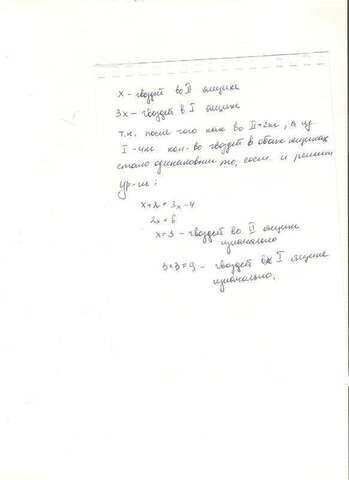 х - гвоздей во II ящике
3х - гвоздей в I ящике
т.к. после того как во II+2кг, а из
I -4кг кол-во гвоздей в обоих ящиках
стало одинаковым то, сост. и решим
ур-ие:
х+2=3х-4
2х=6
х=3 - гвоздей во II ящике
изначально
3*3=9 - гвоздей в I ящике
изначально.